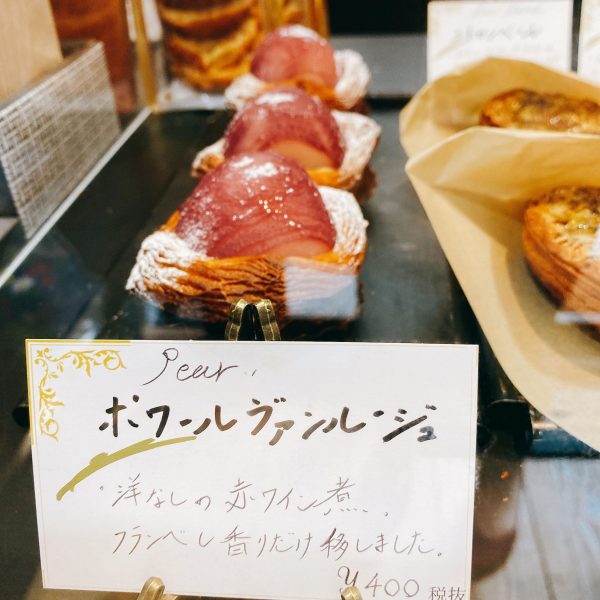 Pear
ポワールヴァンルージュ
洋なしの赤ワイン煮、、
フランベし香りだけ移しました。
¥400 税抜